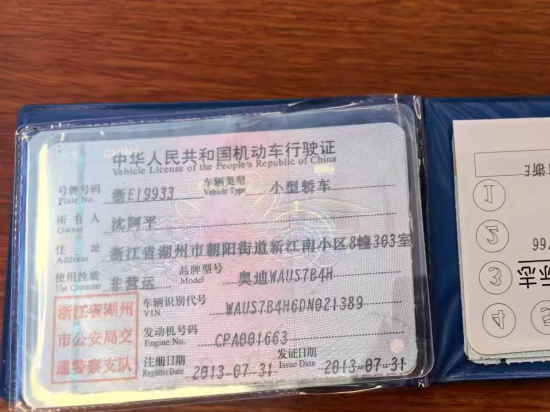 中华人民共和国机动车行驶证
Vehicle License of the People's Republic of China
号牌号码 浙E19933 车辆类型 小型轿车
Plate No. Vehicle Type
所有人 沈阿平
Owner
住址 浙江省湖州市朝阳街道新江南小区8幢303室
Address
使用性质 非营运 品牌型号 奥迪WAUS7B4H
Use Character Model
浙江省湖州市公安局交通警察支队
车辆识别代号 WAUS7B4H6DN021389
VIN
发动机号码 CPA001663
Engine No.
注册日期 2013-07-31 发证日期 2013-07-31
Register Date Issue Date
①
②
③
④
志